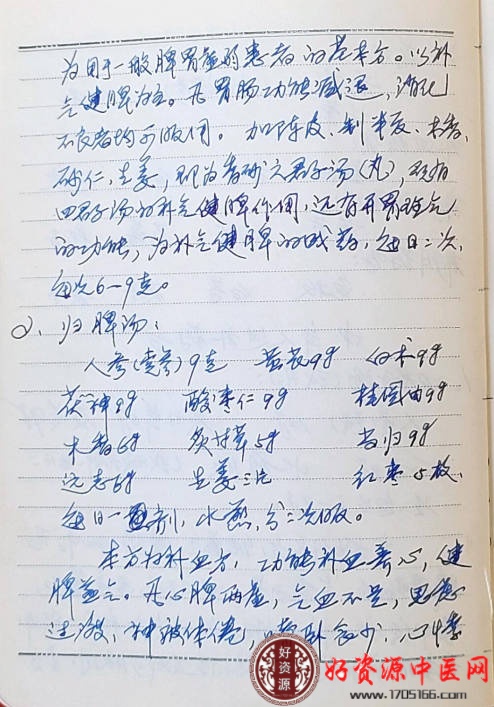 为用于一般脾胃虚弱患者的基本方。以补
气健脾为主。凡胃肠功能减退，消化
不良者均可服用。加陈皮、制半夏、木香、
砂仁、生姜，即为香砂六君子汤（丸），既有
四君子汤的补气健脾作用，还有开胃理气
的功能，为补气健脾的成药，每日二次，
每次6—9克。
2、归脾汤：
人参（党参）9克 黄芪9g 白术9g
茯神9g 酸枣仁9g 桂圆肉9g
木香6g 炙甘草5g 当归9g
远志6g 生姜三片 红枣5枚
每日一剂，水煎，分二次服。
本方为补血方，功能补血养心，健
脾益气。凡心脾两虚，气血不足，思虑
过度，神疲体倦，嗜卧食少，心悸
好资源
好资源中医网
www.1705166.com